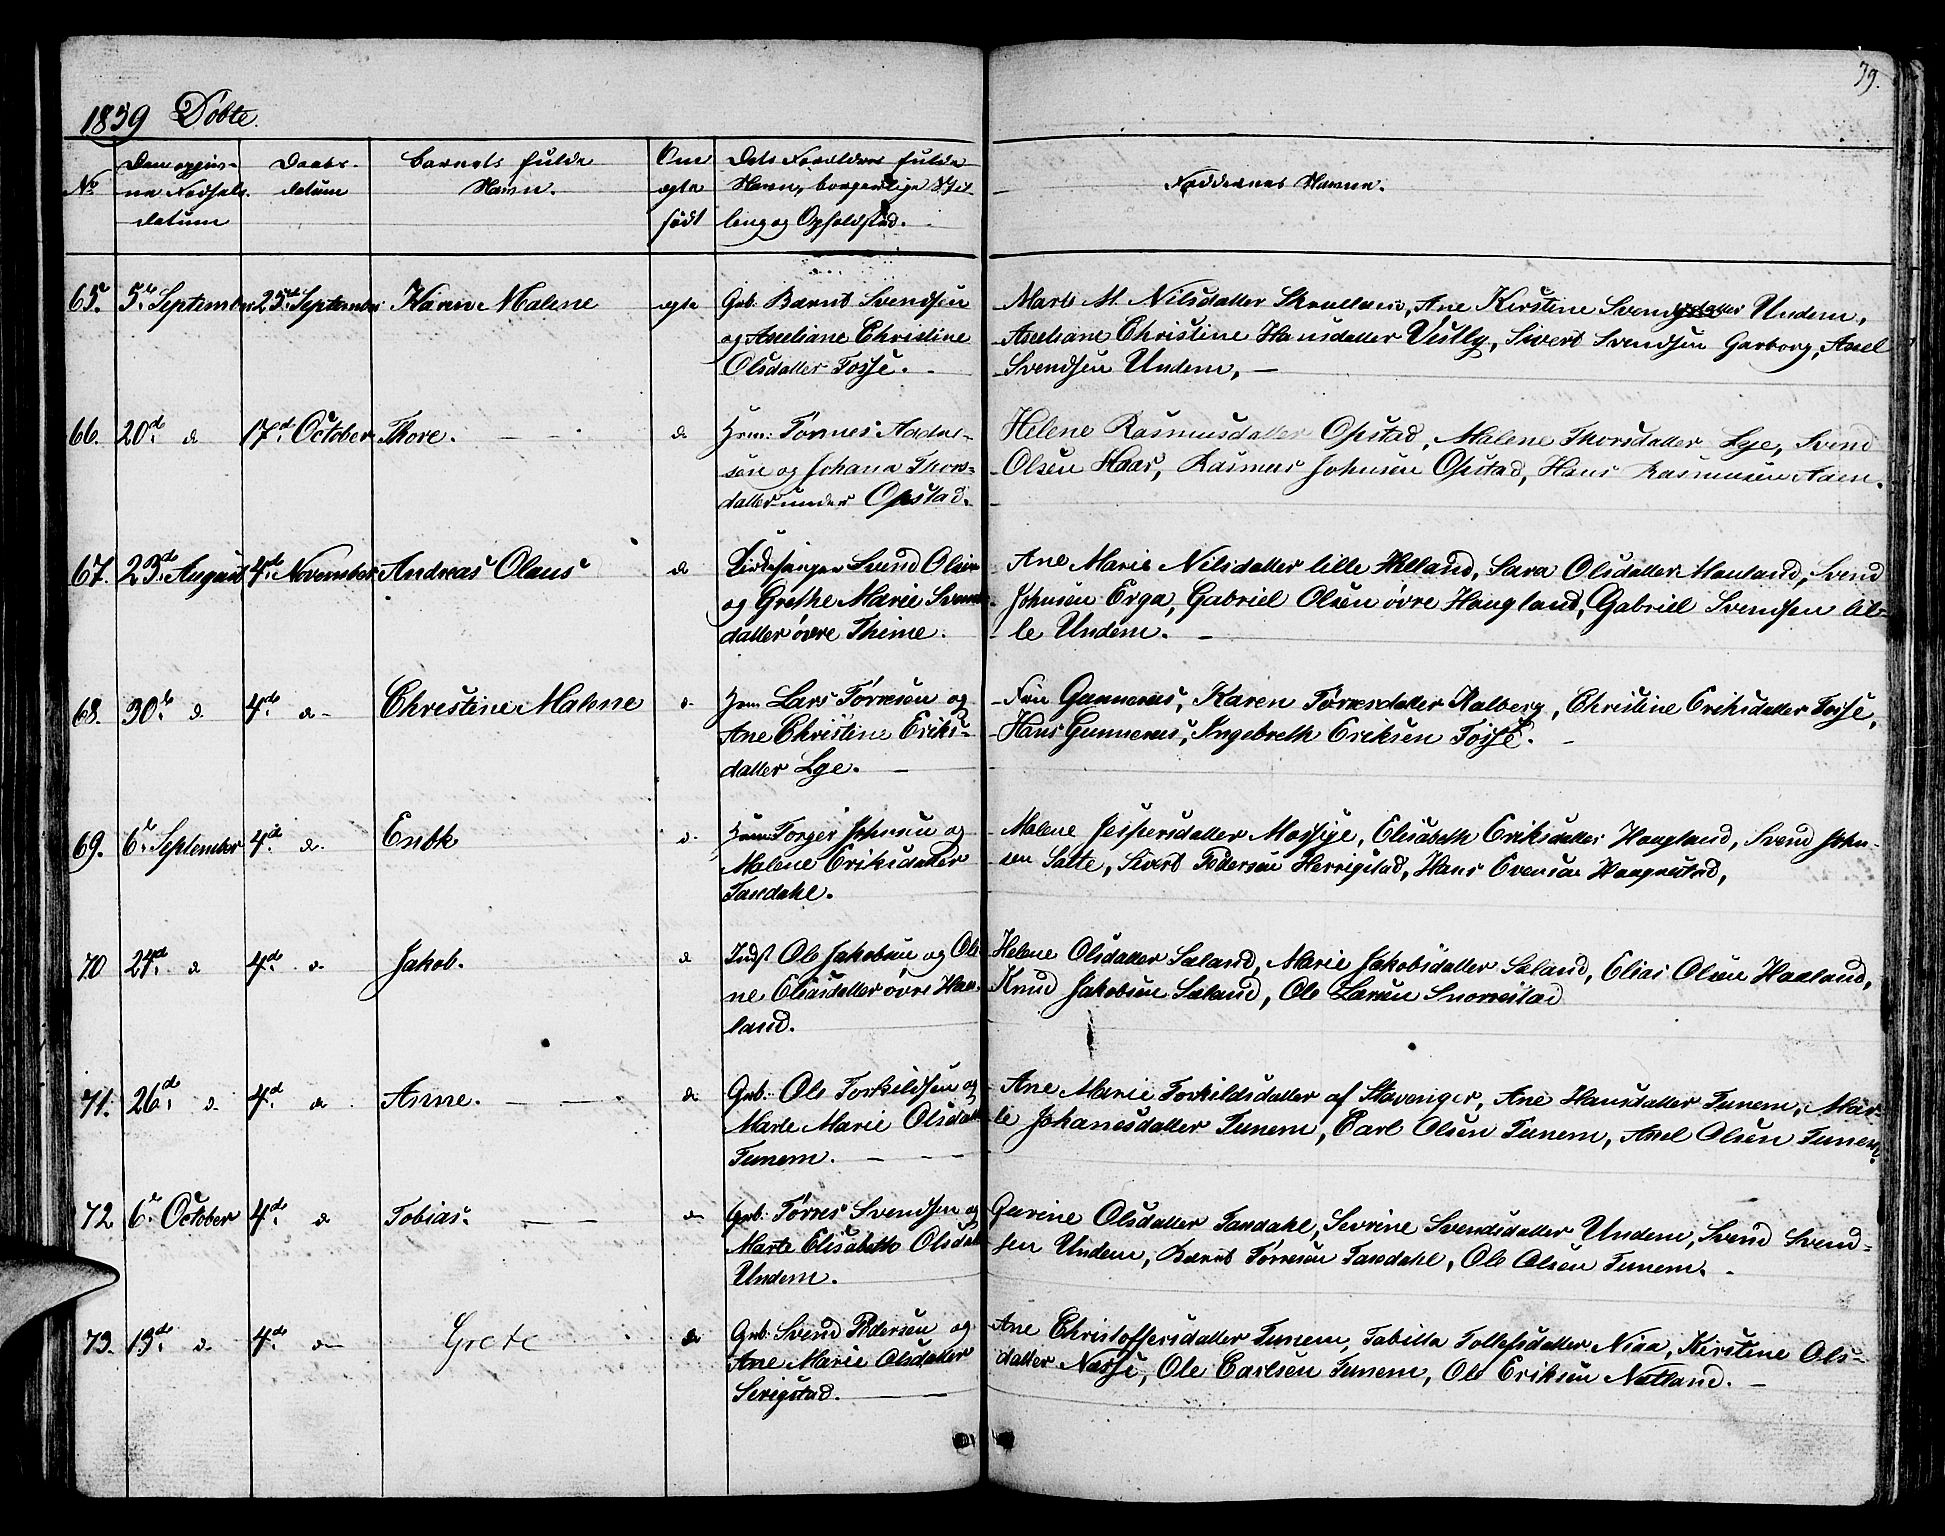 79.
1859 Døbte.
No
Den opgiv-
ne Fødsels
datum
Daabs-
datum
Barnets fulde
Navn.
Om
ægte
født
Dets Forældres fulde
Navn, borgerlige Stil-
ling og Opholdsted.
Faddernes Navne.
65. 5te September 25de September Karen Malene ægte
Grb. Berent Svendsen
og Axeliane Christine
Olsdatter Fosse.
Marte M. Nilsdatter, Ane Kirstine Svendsdatter Undem,
Axeliane Christine Hansdatter Vestly, Sivert Svendsen Garborg, Axel
Svendsen Undem,
66. 20de d 17de October Thore. d
Hsm: Tønnes
sen og Johana Thors-
datter under Opstad.
Helene Rasmusdatter Opstad, Malene Thorsdatter Lye, Svend
Olsen Haar, Rasmus Johnsen Opstad, Hans Rasmusen Aaen.
67. 23de August 4de November Andreas Olaus d
Kirkesanger Svend Olsen
og Grethe Marie Svends-
datter øvre Thime.
Ane Marie Nilsdatter lille Helland, Sara Olsdatter Mauland, Svend
Johnsen Erga, Gabriel Olsen øvre Haugland, Gabriel Svendsen lil-
le Undem.
68. 30te d. 4de d Christine Malene d.
Hsm Lars Tørresen og
Ane Christine Eriks-
datter Lye.
Fru Gunnerus, Karen Tørresdatter Kalberg, Christine Eriksdatter Fosse,
Hans Gunnerus, Ingebreth Eriksen Fosse.
69. 6te September 4de d. Enok d.
Hsm: Torger Johnsen og
Malene Eriksdatter
Taxdahl.
Malene Jespersdatter Mossige, Elisabeth Eriksdatter Haugland, Svend John-
sen Salte, Sivert Pedersen Herrigstad, Hans Evensen Haagnestad,
70 24de d 4de d. Jakob. d
Indst Ole Jakobsen og Oli
ne Eliasdatter øvre Haa-
land.
Helene Olsdatter Sæland, Marie Jakobsdatter Sæland, Elias Olsen Haaland,
Knud Jakobsen Sæland, Ole Larsen Snorrestad
71. 26de d. 4de d Anne. d
Grb. Ole Torkildsen og
Marte Marie Olsdatt
Tunem.
Ane Marie Torkildsdatter af Stavanger, Ane Hansdatter Tunem, Mar-
te Johanesdatter Tunem, Carl Olsen Tunem, Axel Olsen Tunem.
72 6te October 4de d Tobias. d
Grb. Tørres Svendsen og
Marte Elisabeth Olsdat
Undem.
Gurine Olsdatter Taxdahl, Sevrine Svendsdatter Undem, Svend Svend-
sen Undem, Berent Tørresen Taxdahl, Ole Olsen Tunem.
73. 13de d. 4de d Grete d
Grb. Svend Pedersen og
Ane Marie Olsdatter
Serigstad.
Ane Christoffersdatter Tunem, Tabitta Tollefsdatter Niaa, Kirstine Ols-
datter Næsse, Ole Carlsen Tunem, Ole Eriksen Netland.